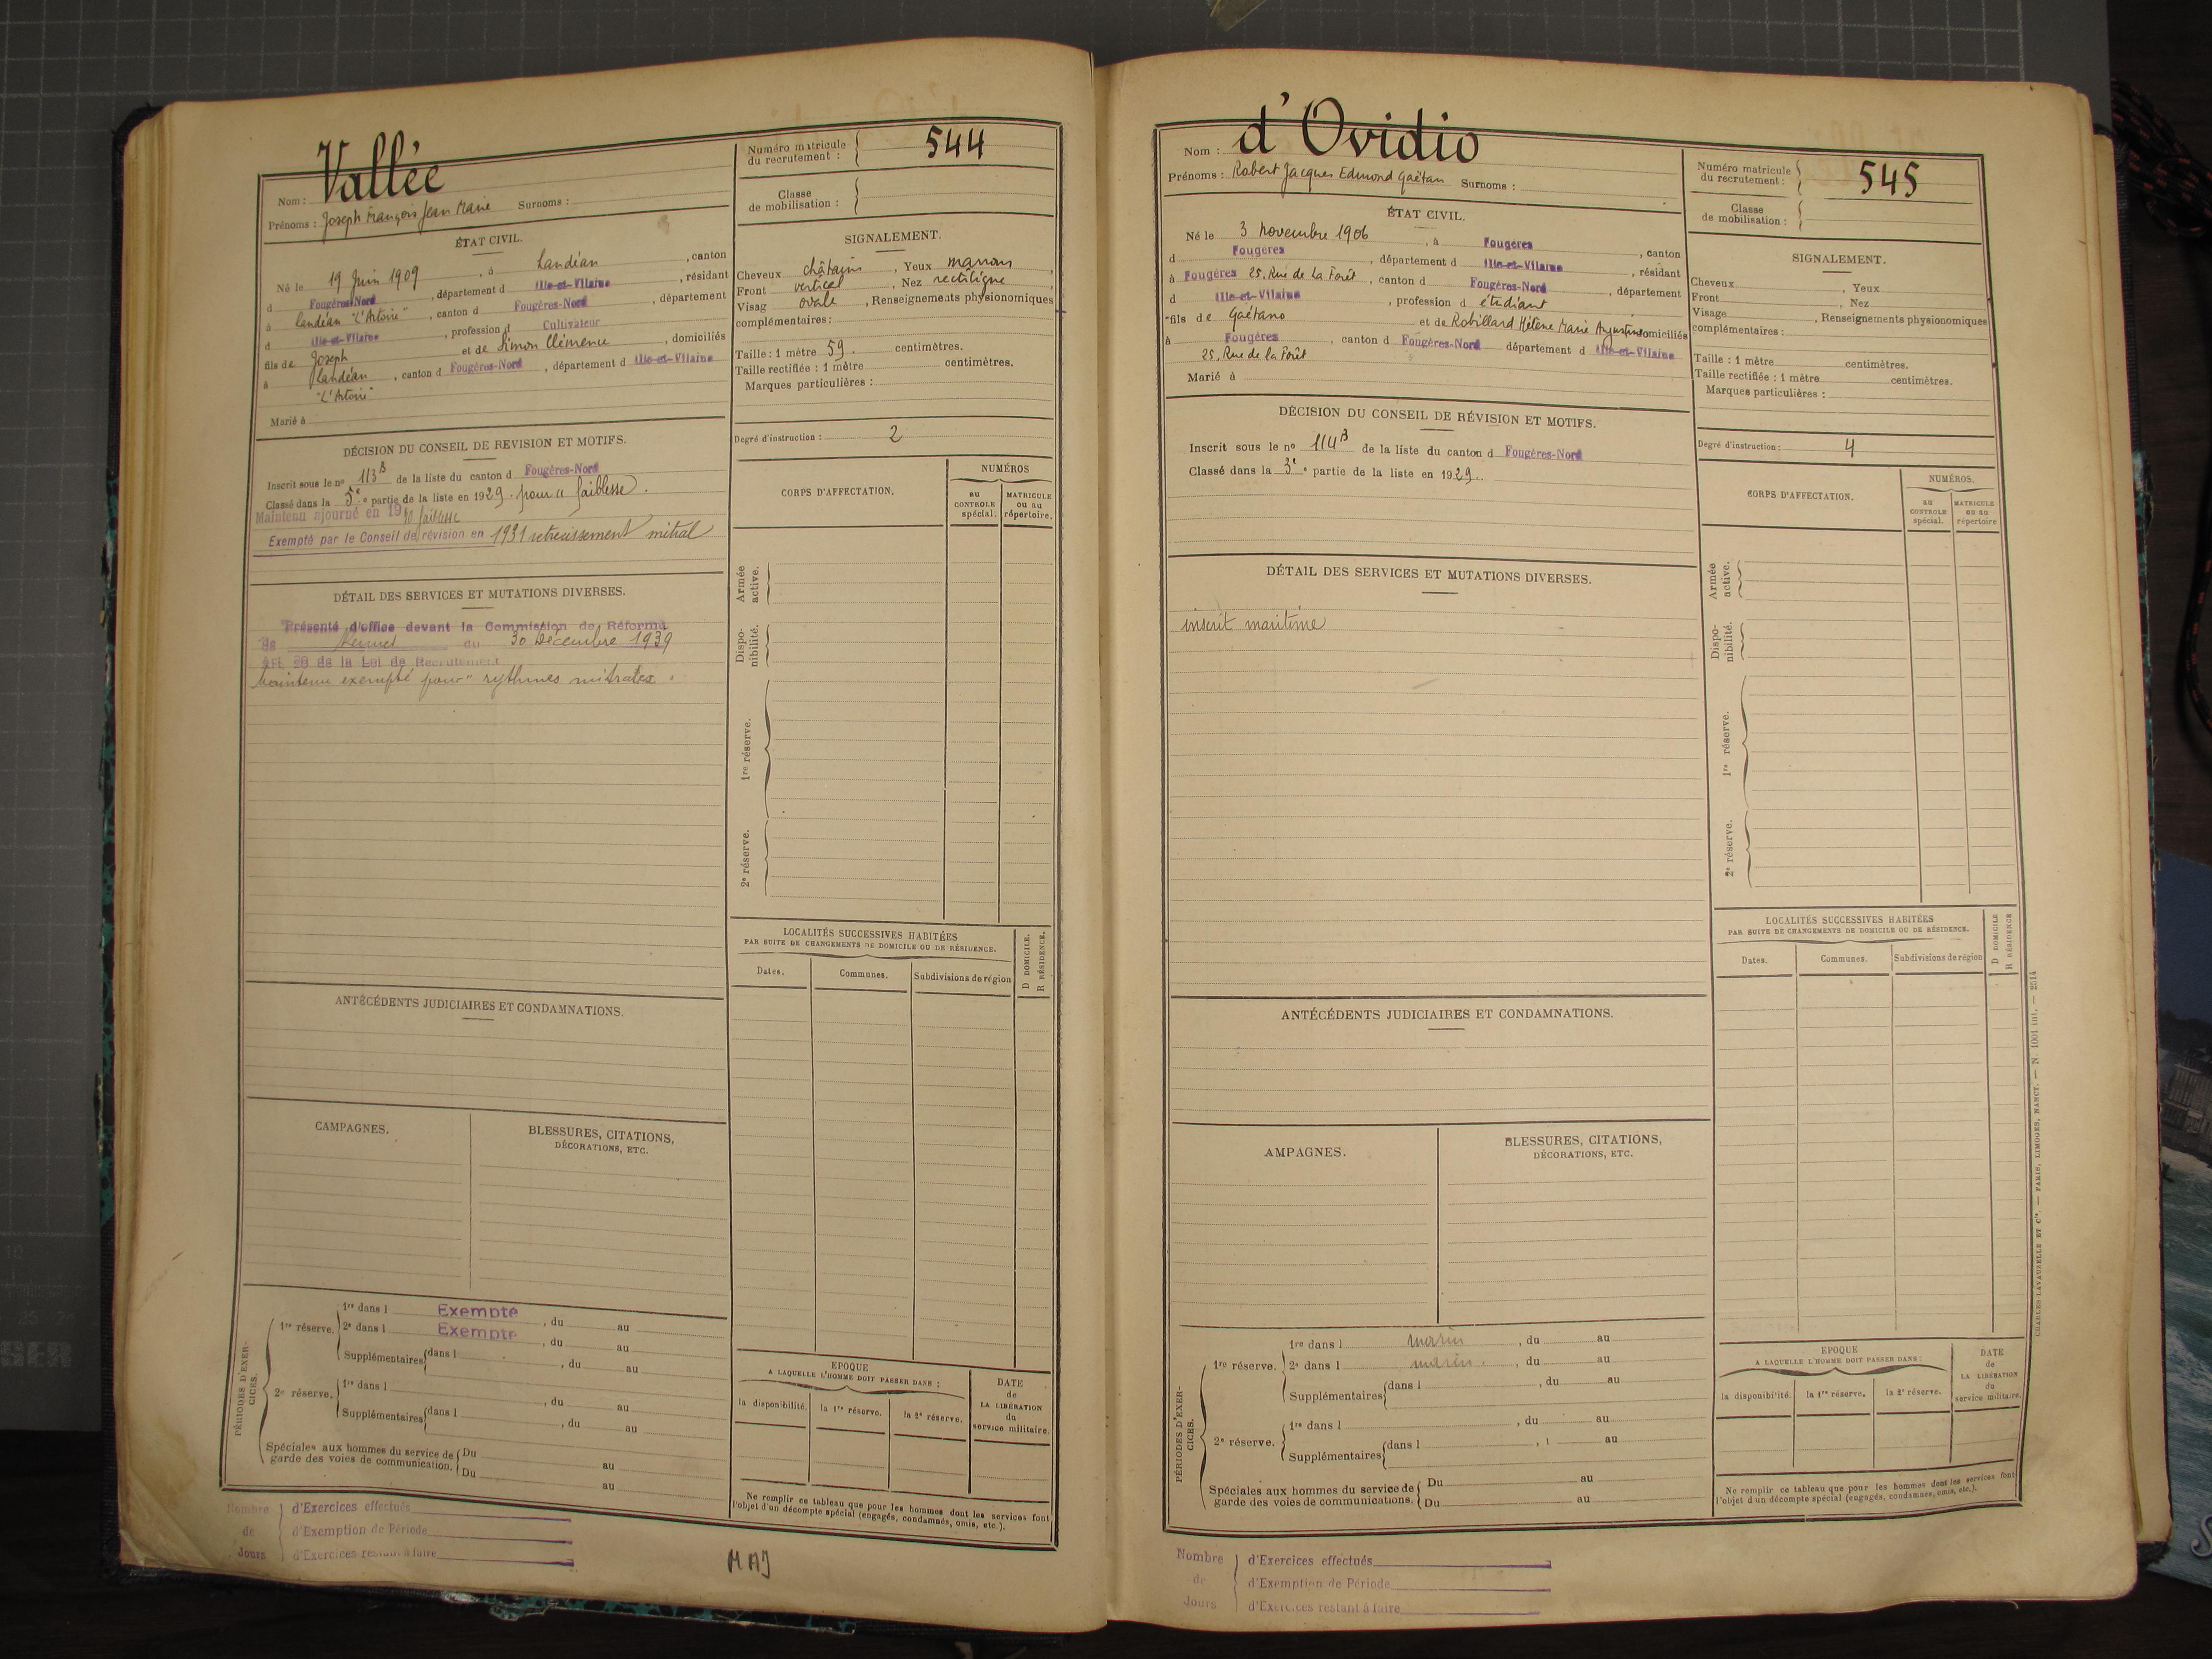 Vallée
Nom :
Prénoms : Joseph François Jean Marie Surnoms :
ÉTAT CIVIL.
Né le 19 Juin 1909 , à Landéan , canton
d Fougères-Nord , département d Ille-et-Vilaine , résidant
à Landéan "L'Artoire" , canton d Fougères-Nord , département
d Ille-et-Vilaine , profession d Cultivateur
fils de Joseph et de Simon Clémence , domiciliés
à Landéan , canton d Fougères-Nord , département d Ille-et-Vilaine
"L'Artoire"
Marié à
DÉCISION DU CONSEIL DE REVISION ET MOTIFS.
Inscrit sous le nº 113B de la liste du canton d Fougères-Nord
Classé dans la 5e partie de la liste en 1929. pour " faiblesse .
Maintenu ajourné en 1930 faiblesse
Exempté par le Conseil de révision en 1931 retrecissement mitral
DÉTAIL DES SERVICES ET MUTATIONS DIVERSES.
Présenté d'office devant la Commission de Réforme
de Rennes du 30 Décembre 1939
Art. 20 de la Loi de Recrutement
Maintenu exempté pour " rythmes mitrales "
ANTÉCÉDENTS JUDICIAIRES ET CONDAMNATIONS.
CAMPAGNES.
BLESSURES, CITATIONS,
DÉCORATIONS, ETC.
PÉRIODES D'EXER-
CICES.
1re réserve.
1re dans l Exempté , du au
2e dans l Exempté , du au
Supplémentaires dans l , du au
2e réserve.
1re dans l , du au
Supplémentaires dans l , du au
Spéciales aux hommes du service de
garde des voies de communication.
Du au
Du au
Nombre
de
Jours
d'Exercices effectués
d'Exemption de Période
d'Exercices restant à faire
Numéro matricule
du recrutement :
544
Classe
de mobilisation :
SIGNALEMENT.
Cheveux châtains , Yeux marrons ,
Front vertical , Nez rectiligne ,
Visag ovale , Renseignements physionomiques
complémentaires :
Taille : 1 mètre 59. centimètres.
Taille rectifiée : 1 mètre centimètres.
Marques particulières :
Degré d'instruction : 2
CORPS D'AFFECTATION.
NUMÉROS
au
CONTROLE
spécial.
MATRICULE
ou au
répertoire.
Armée
active.
Dispo-
nibilité.
1re réserve.
2e réserve.
LOCALITÉS SUCCESSIVES HABITÉES
PAR SUITE DE CHANGEMENTS DE DOMICILE OU DE RÉSIDENCE.
D DOMICILE.
R RÉSIDENCE.
Dates.
Communes.
Subdivisions de région
EPOQUE
A LAQUELLE L'HOMME DOIT PASSER DANS :
la disponibilité.
la 1re réserve.
la 2e réserve.
DATE
de
LA LIBÉRATION
du
service militaire.
Ne remplir ce tableau que pour les hommes dont les services font
l'objet d'un décompte spécial (engagés, condamnés, omis, etc.).
MAJ
Nom : d'Ovidio
Prénoms : Robert Jacques Edmond Gaëtan Surnoms :
ÉTAT CIVIL.
Né le 3 novembre 1906 , à Fougères , canton
d Fougères , département d Ille-et-Vilaine , résidant
à Fougères 25, Rue de La Forêt , canton d Fougères-Nord , département
d Ille-et-Vilaine , profession d étudiant
fils de Gaëtano et de Robillard Hélène Marie Augustine domiciliés
à Fougères , canton d Fougères-Nord département d Ille-et-Vilaine
25, Rue de la Forêt
Marié à
DÉCISION DU CONSEIL DE RÉVISION ET MOTIFS.
Inscrit sous le nº 114B de la liste du canton d Fougères-Nord
Classé dans la 3e partie de la liste en 1929.
DÉTAIL DES SERVICES ET MUTATIONS DIVERSES.
inscrit maritime
ANTÉCÉDENTS JUDICIAIRES ET CONDAMNATIONS.
AMPAGNES.
BLESSURES, CITATIONS,
DÉCORATIONS, ETC.
PÉRIODES D'EXER-
CICES.
1re réserve.
1re dans l marin , du au
2e dans l marin. , du au
Supplémentaires dans l , du au
2e réserve.
1re dans l , du au
Supplémentaires dans l , au
Spéciales aux hommes du service de
garde des voies de communications.
Du au
Du au
Nombre
de
Jours
d'Exercices effectués
d'Exemption de Période
d'Exercices restant à faire
Numéro matricule
du recrutement :
545
Classe
de mobilisation :
SIGNALEMENT.
Cheveux , Yeux
Front , Nez
Visage , Renseignements physionomiques
complémentaires :
Taille : 1 mètre centimètres.
Taille rectifiée : 1 mètre centimètres.
Marques particulières :
Degré d'instruction : 4
CORPS D'AFFECTATION.
NUMÉROS.
au
CONTROLE
spécial.
MATRICULE
ou au
répertoire
Armée
active.
Dispo-
nibilité.
1re réserve.
2e réserve.
LOCALITÉS SUCCESSIVES HABITÉES
PAR SUITE DE CHANGEMENTS DE DOMICILE OU DE RÉSIDENCE.
D DOMICILE
R RÉSIDENCE
Dates.
Communes.
Subdivisions de région
EPOQUE
A LAQUELLE L'HOMME DOIT PASSER DANS :
la disponibilité.
la 1re réserve.
la 2e réserve.
DATE
de
LA LIBÉRATION
du
service militaire.
Ne remplir ce tableau que pour les hommes dont les services font
l'objet d'un décompte spécial (engagés, condamnés, omis, etc.).
CHARLES LAVAUZELLE ET Cie. — PARIS, LIMOGES, NANCY. — N. 1001 int. — 2514